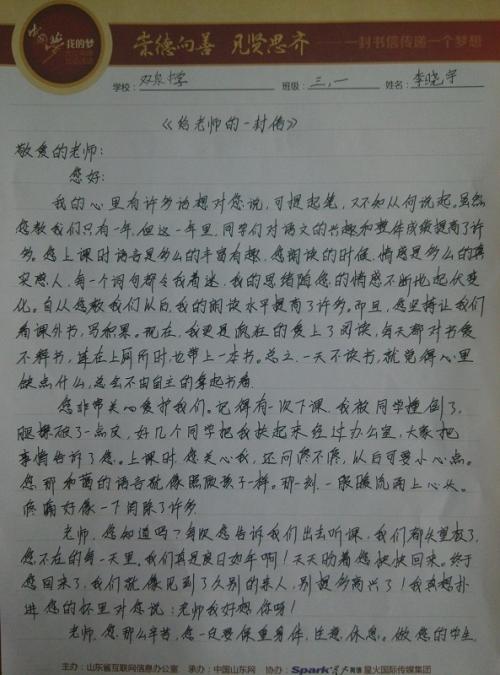 中国梦 我的梦
崇德向善 见贤思齐 ——一封书信传递一个梦想
学校：双泉中学 班级：三，一 姓名：李晓宇
《给老师的一封信》
敬爱的老师：
您好：
我的心里有许多话想对您说，可提起笔，又不知从何说起。虽然
您教我们只有一年，但这一年里，同学们对语文的兴趣和整体成绩提高了许
多。您上课时语言是多么的丰富有趣，您阅读的时候，情感是多么的真
实感人，每一个词句都令我着迷，我的思绪随您的情感不断地起伏变
化。自从您教我们以后，我的阅读水平提高了许多。而且，您坚持让我们
看课外书，写积累。现在，我更是疯狂的爱上了阅读，每天都对书爱
不释手，连在上厕所时，也带上一本书。总之，一天不读书，就觉得心里
缺点什么，总会不由自主的拿起书看.
您非常关心爱护我们。记得有一次下课，我被同学撞倒了，
腿擦破了一点皮，好几个同学把我扶起来经过办公室，大家把
事情告诉了您。上课时，您关心我，还问疼不疼，以后可要小心点。
您那和蔼的语言就像照顾孩子一样。那一刻，一股暖流涌上心头。
疼痛好像一下消除了许多.
老师，您知道吗？每次您告诉我们出去听课，我们都失望极了，
您不在的每一天里。我们真是度日如年啊！天天盼着您快快回来。终于
您回来了，我们就像见到了久别的亲人，别提多高兴了！我真想扑
进您的怀里对您说：老师我好想你呀！
老师，您那么辛苦，您一定要保重身体，注意休息。做您的学生
主办：山东省互联网信息办公室 承办：中国山东网 协办：Spark 星火英语 星火国际传媒集团